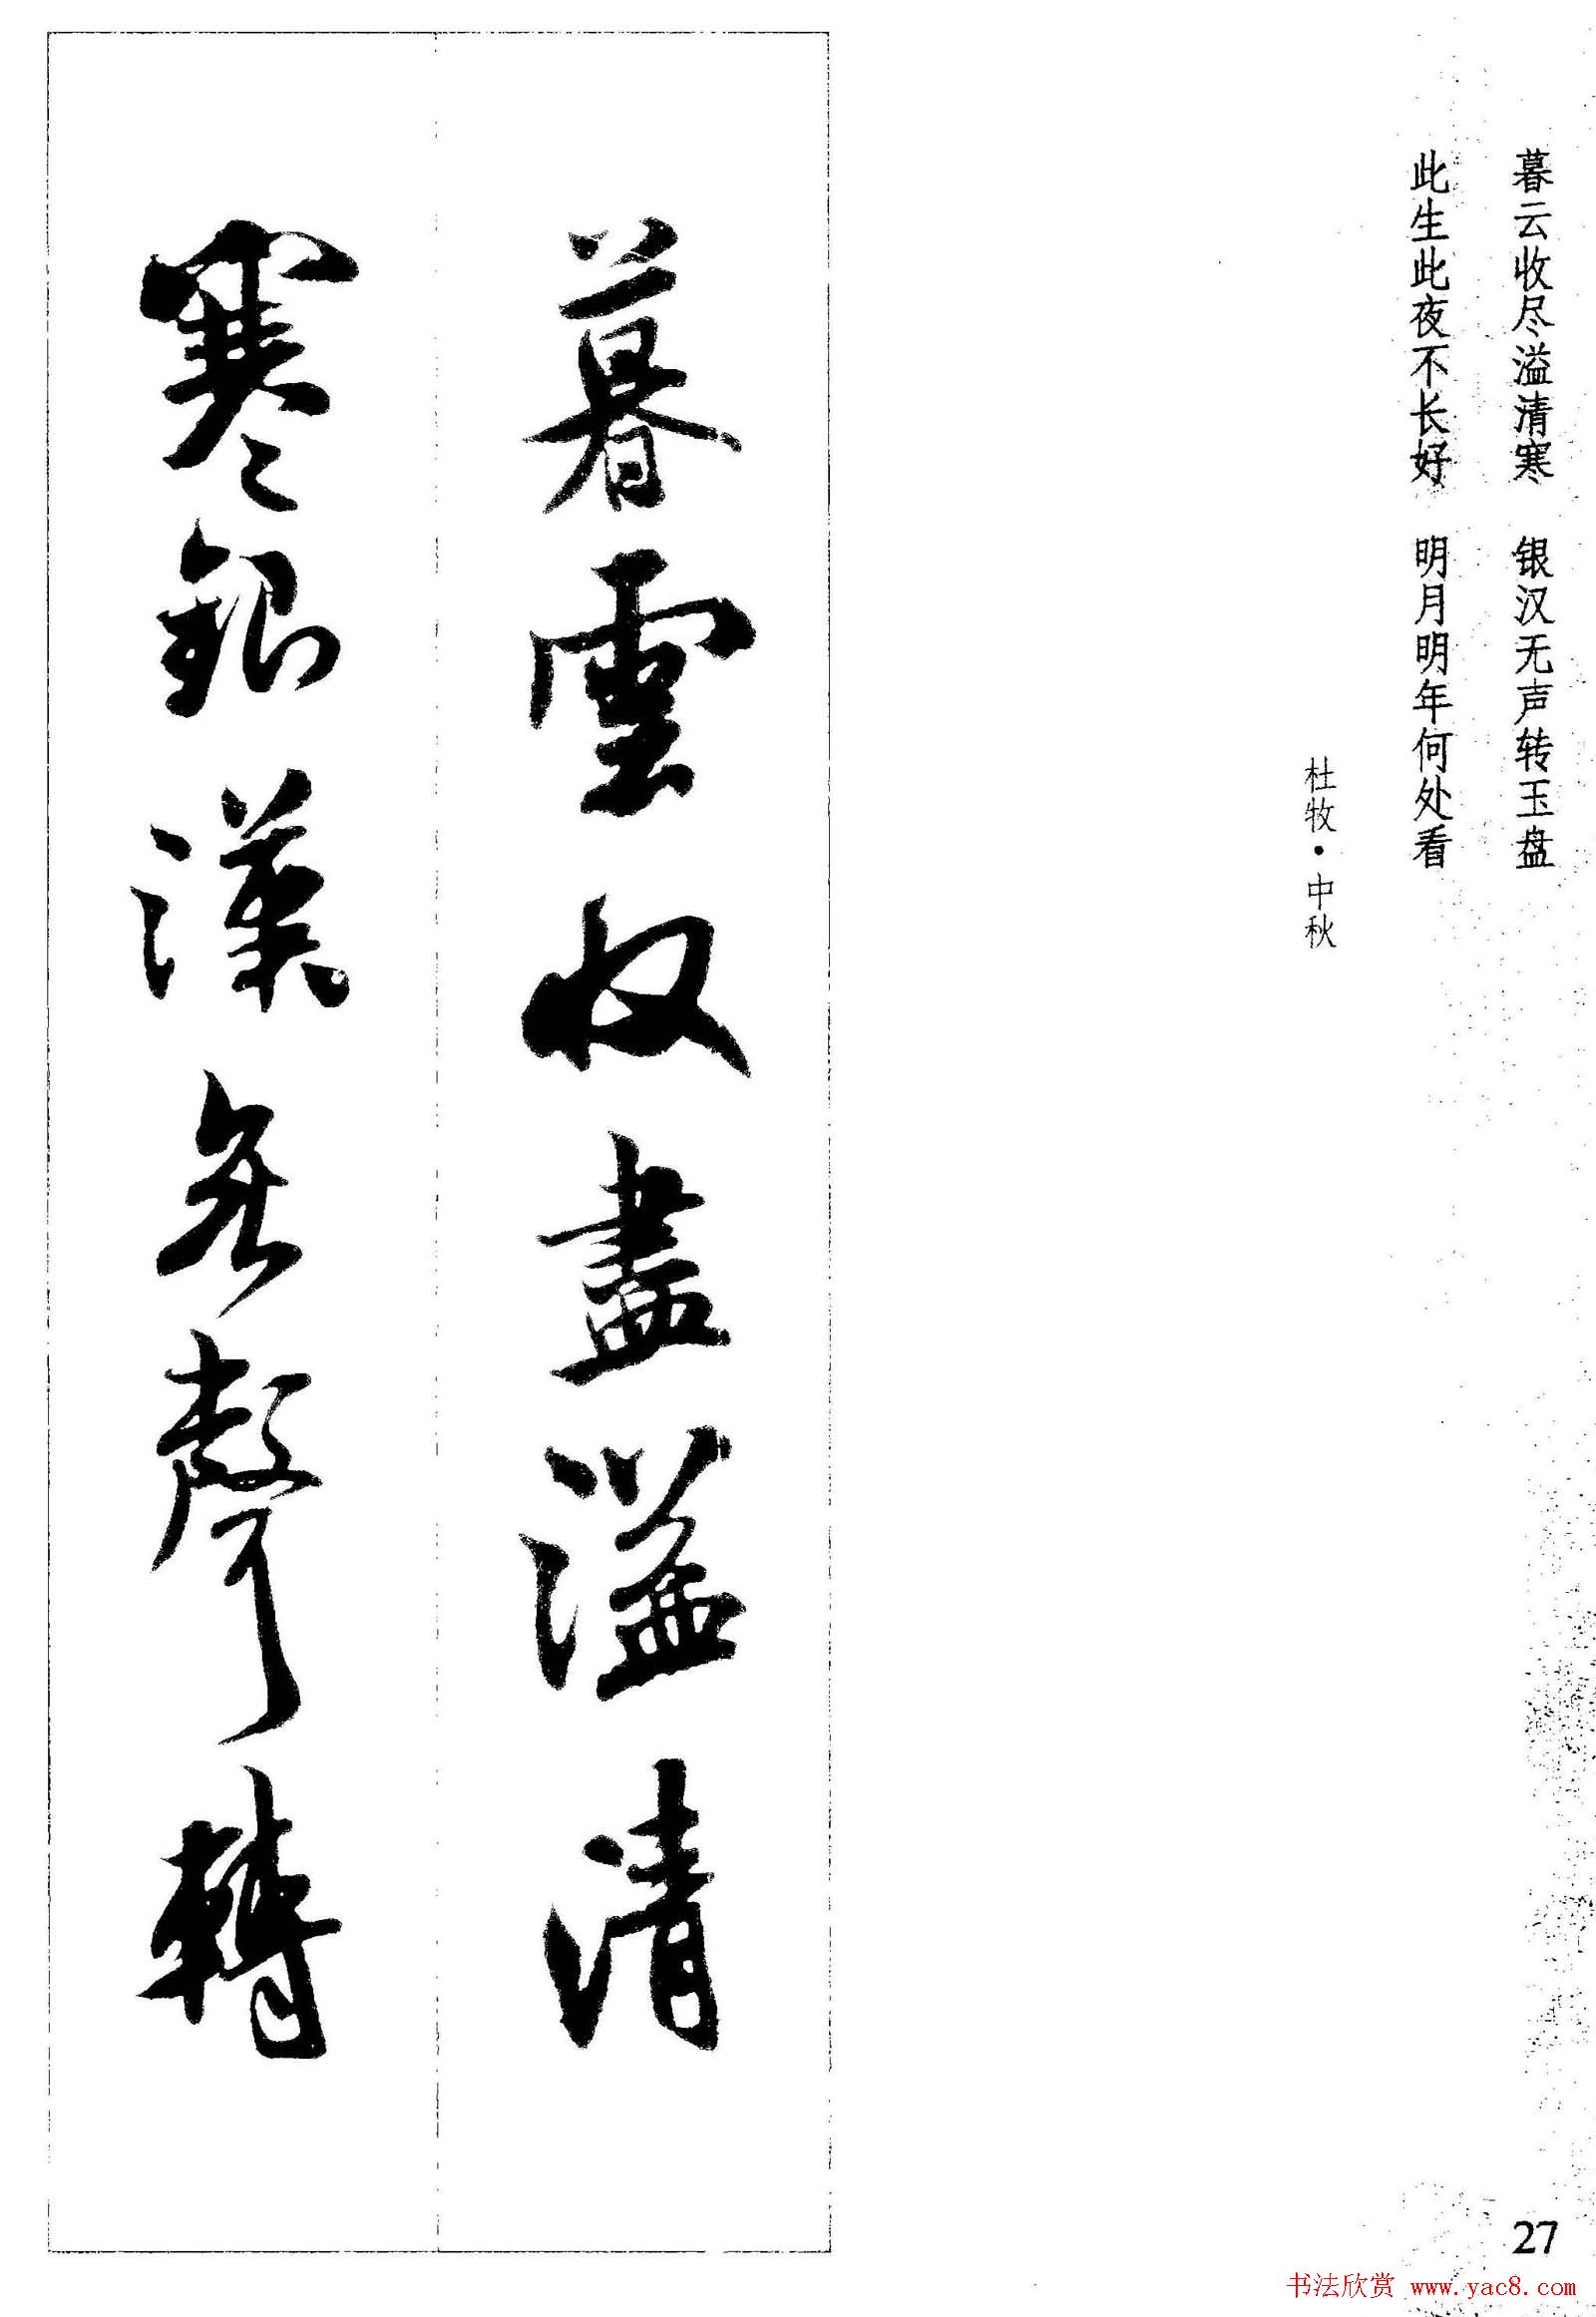 暮云收尽溢清寒　银汉无声转玉盘
此生此夜不长好　明月明年何处看
杜牧·中秋
暮雲收盡溢清
寒銀漢無聲轉
27
书法欣赏 www.yac8.com